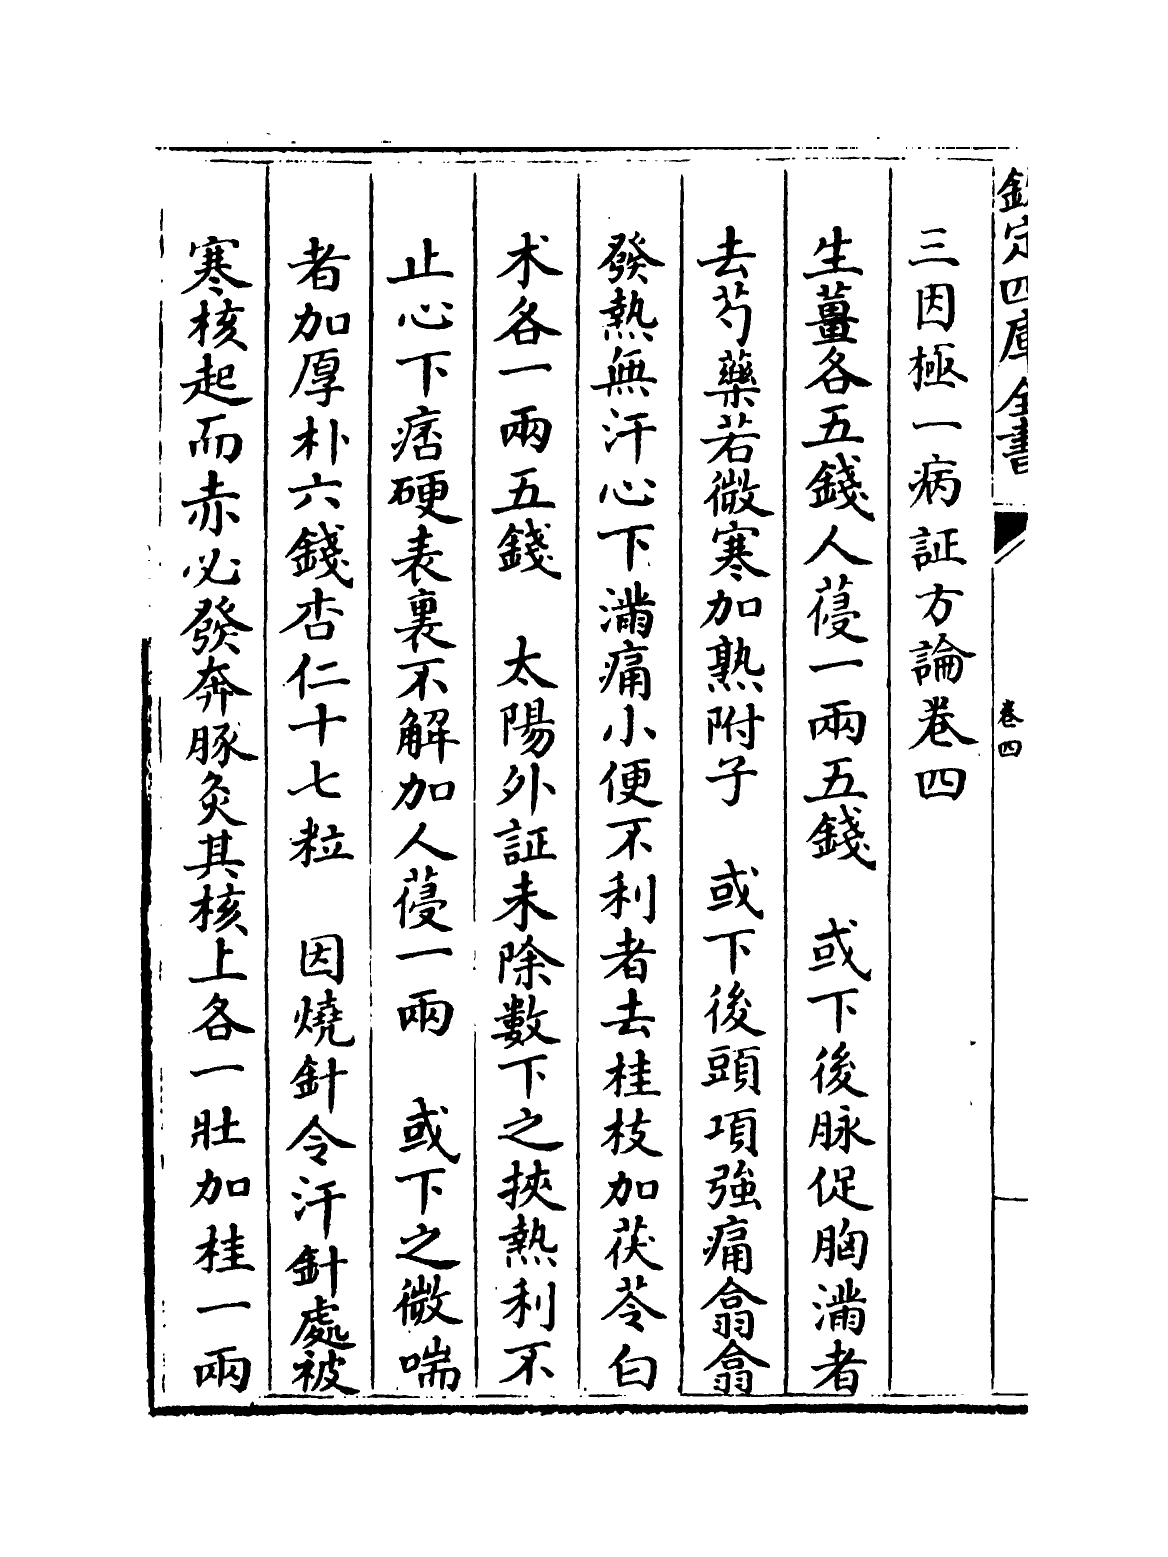 欽定四庫全書
卷四
三因極一病証方論卷四
生薑各五錢人薓一兩五錢　或下後脉促胸滿者
去芍藥若微寒加熟附子　或下後頭項強痛翕翕
發熱無汗心下滿痛小便不利者去桂枝加茯苓白
术各一兩五錢　太陽外証未除數下之挾熱利不
止心下痞硬表裏不解加人薓一兩　或下之微喘
者加厚朴六錢杏仁十七粒　因燒針令汗針處被
寒核起而赤必發奔豚灸其核上各一壯加桂一兩